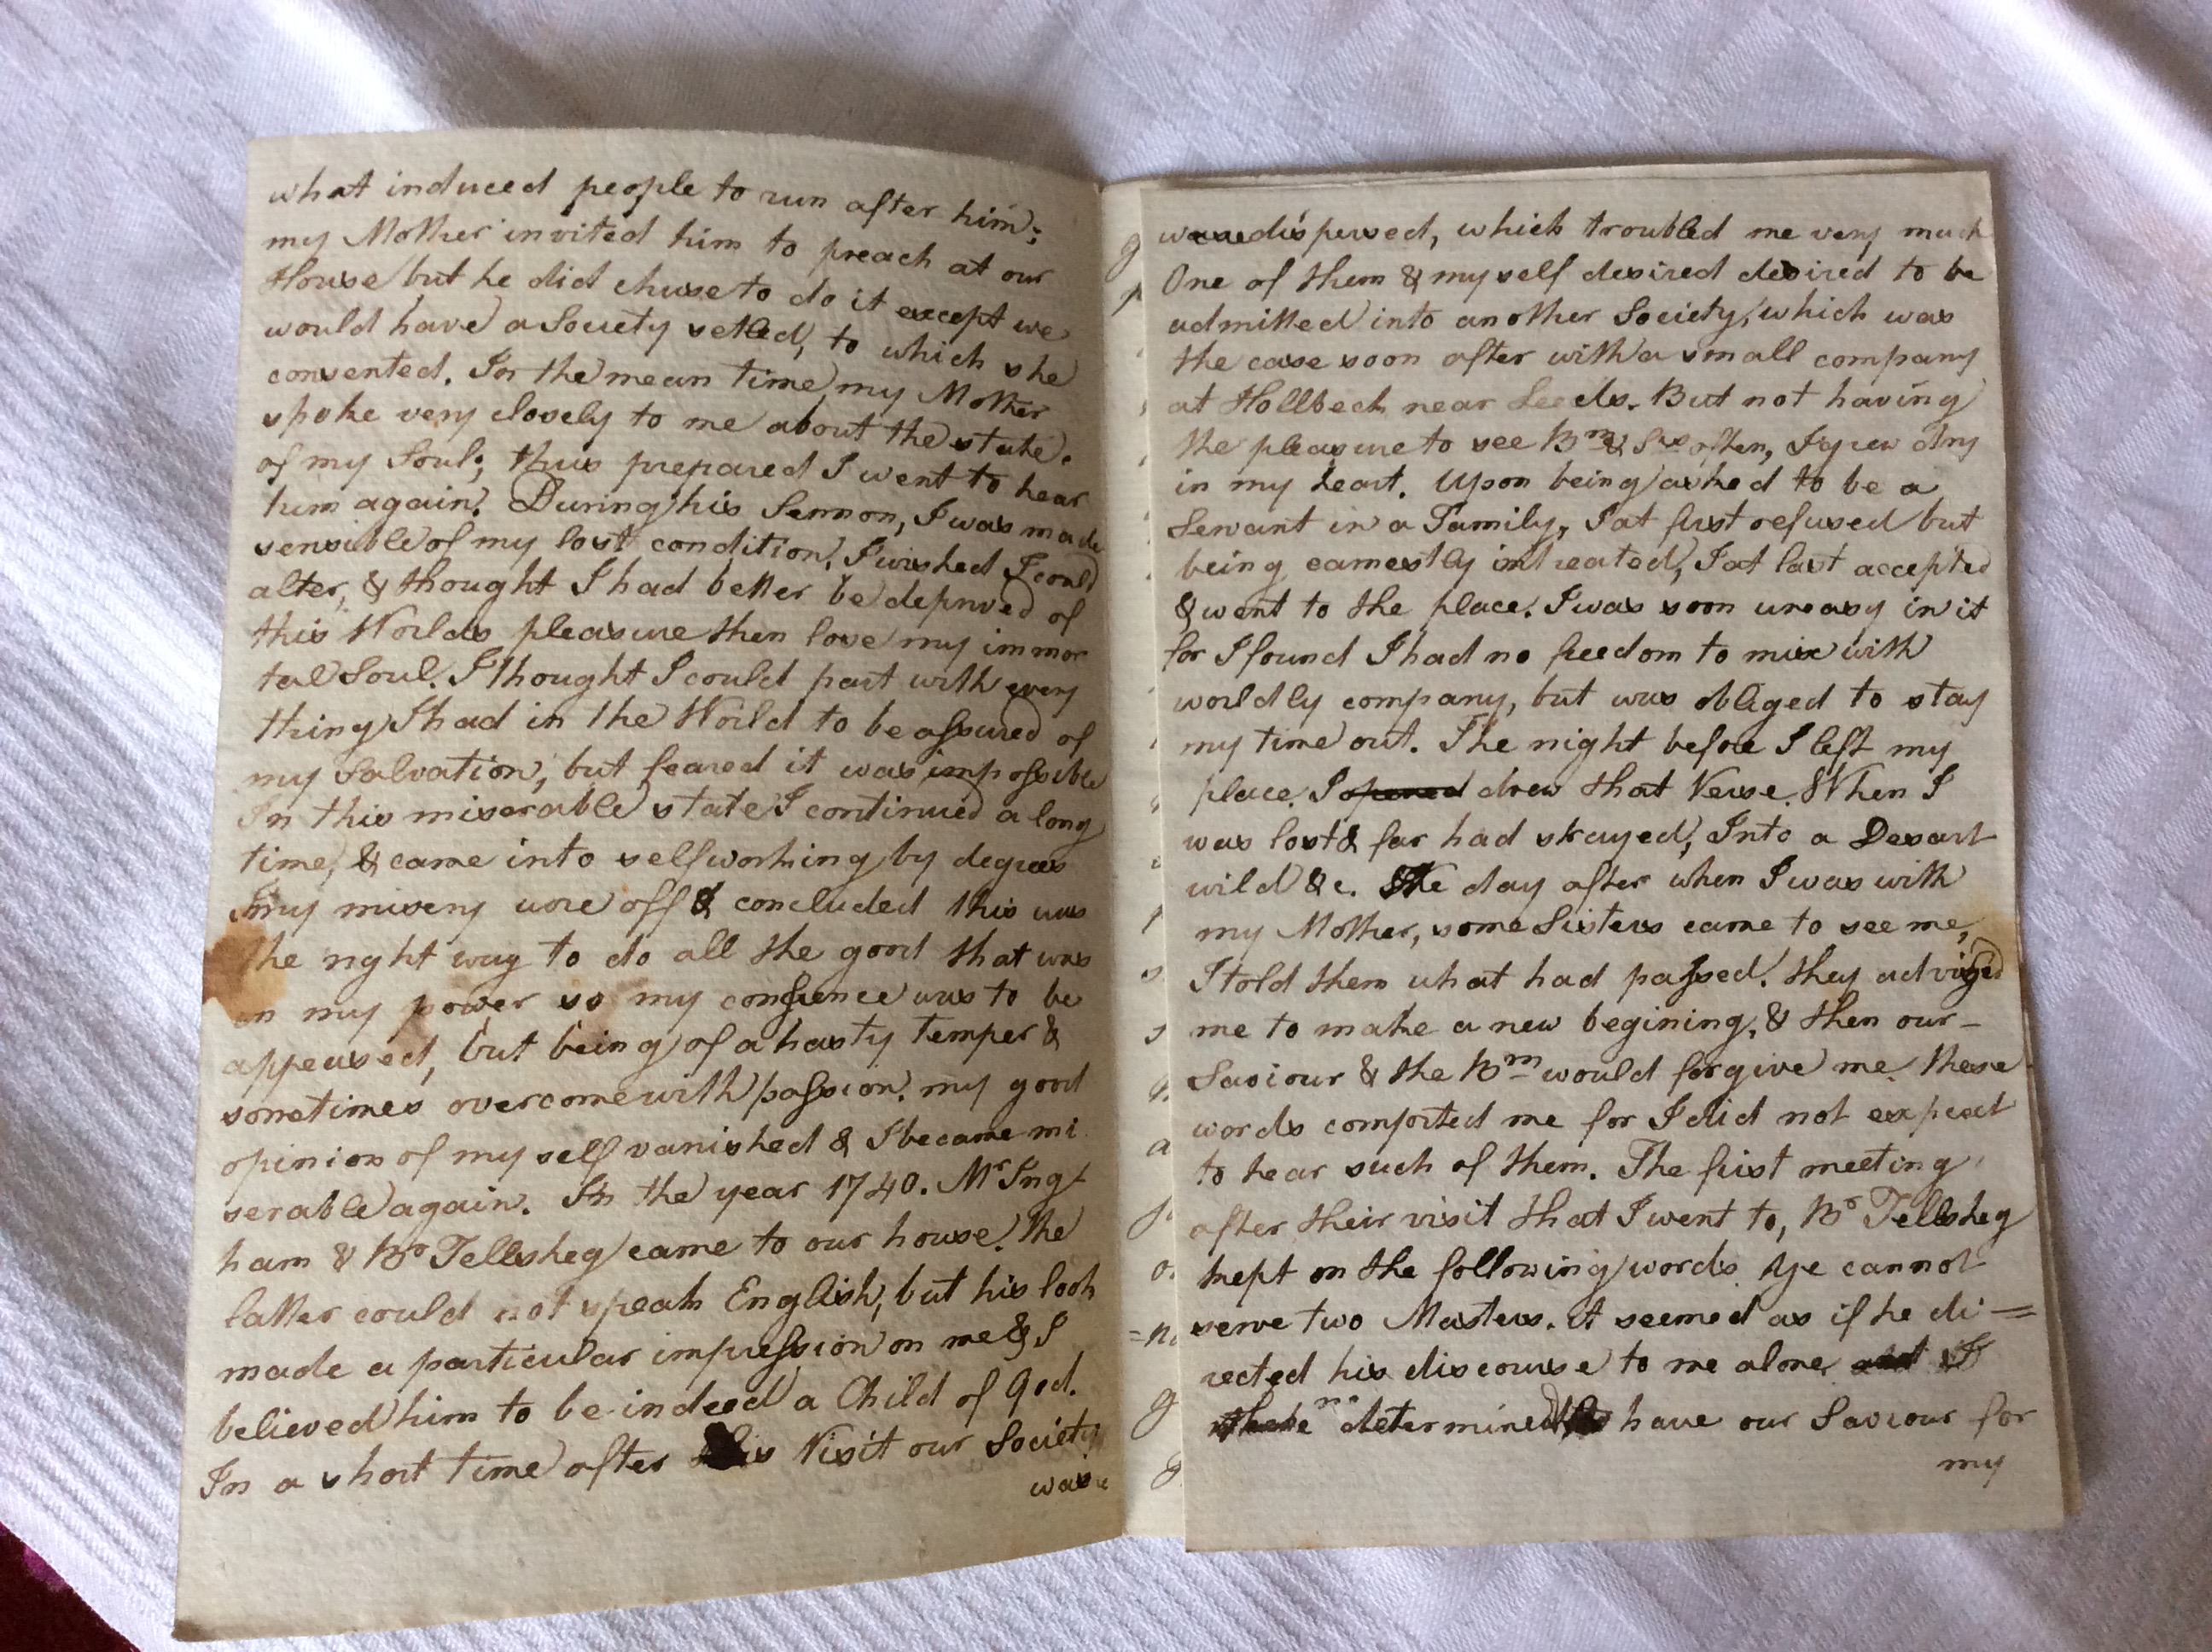 what induced people to run after him;
my Mother invited him to preach at our
House but he did chuse to do it except we
would have a Society setled, to which she
consented. In the mean time, my Mother
spoke very closely to me about the state
of my Soul; thus prepared I went to hear
him again. During his Sermon, I was made
sensible of my lost condition, I wished I could
alter, & thought I had better be deprived of
this Worlds pleasure then lose my immor
tal Soul. I thought I could part with every
thing I had in the World to be assured of
my Salvation, but feared it was impossible
In this miserable state I continued a long
time, & came into selfworking, by degrees
my misery wore off & concluded this was
the right way to do all the good that was
in my power so my consience was to be
appeased, but being of a hasty temper &
sometimes overcome with passion. my good
opinion of my self vanished & I became mi
serable again. In the year 1740. Mr Ing
ham & Br Tellsheg came to our house. The
latter could not speak English, but his look
made a particular impression on me & I
believed him to be indeed a Child of God.
In a short time after this Visit our Society
was
were dispersed, which troubled me very much
One of them & myself desired desired to be
admitted into another Society, which was
the case soon after with a small company
at Hollbeck near Leeds. But not having
the pleasure to see Brn & Srs often, I grew dry
in my heart. Upon being asked to be a
Servant in a Family, I at first refused but
being earnestly intreated, I at last accepted
& went to the place. I was soon uneasy in it
for I found I had no freedom to mix with
worldly company, but was obliged to stay
my time out. The night before I left my
place. I opened drew that Verse. When I
was lost & far had strayed, Into a Desart
wild &c. The day after when I was with
my Mother, some Sisters came to see me,
I told them what had passed. they advised
me to make a new begining, & then our
Saviour & the Brn would forgive me. These
words comforted me for I did not expect
to hear such of them. The first meeting
after their visit that I went to, Br Tellsheg
kept on the following words. Ye cannot
serve two Masters. It seemed as if he di=
rected his discourse to me alone and I
determined to have our Saviour for
my